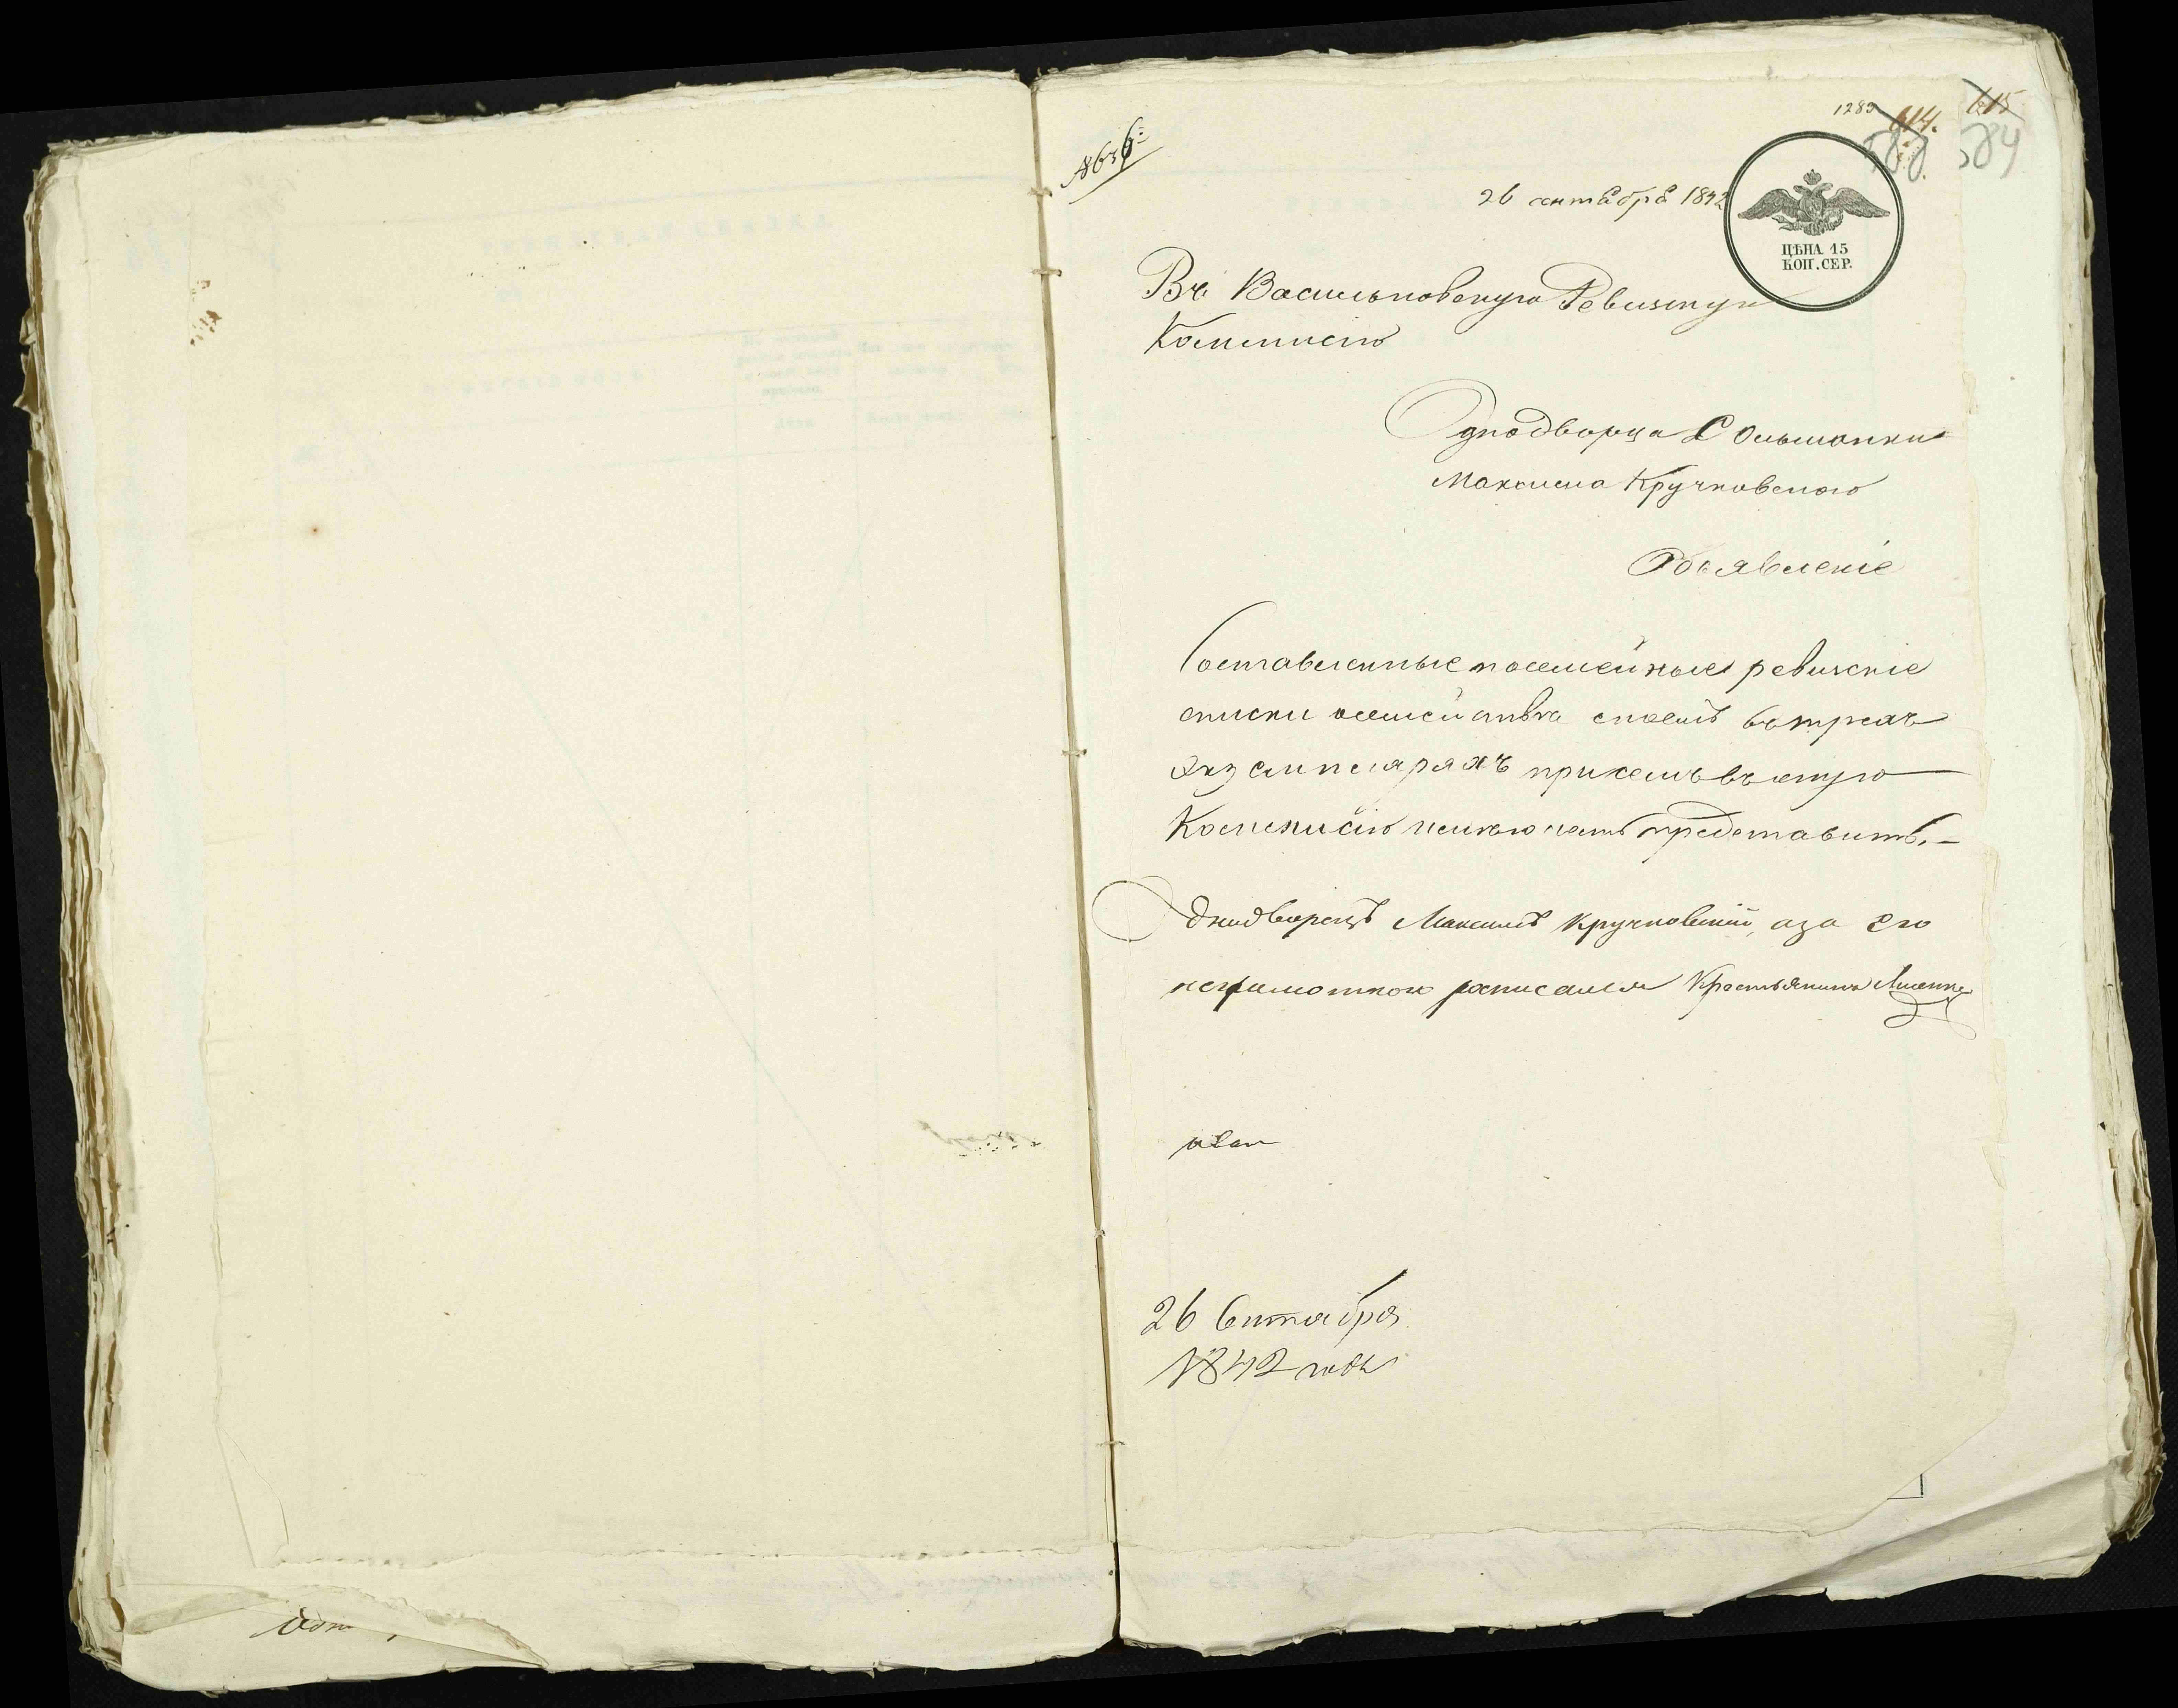 1289 614. 615
588. 584
26 сентября 1842
ЦѢНА 15
КОП. СЕР.
Въ Васильковскую Ревизскую
Коммисію
Однодворца С Ольшанки
Максима Кручковского
Объявленіе
Составленные посемейные ревизскіе
списки семейства въ трехъ
экземплярахъ при семъ въ оную
Коммисію честь представить.—
Однодворецъ Максимъ Кручковскій, а за его
неграмотною росписался Крестьянинъ
26 Сентября
1842 года